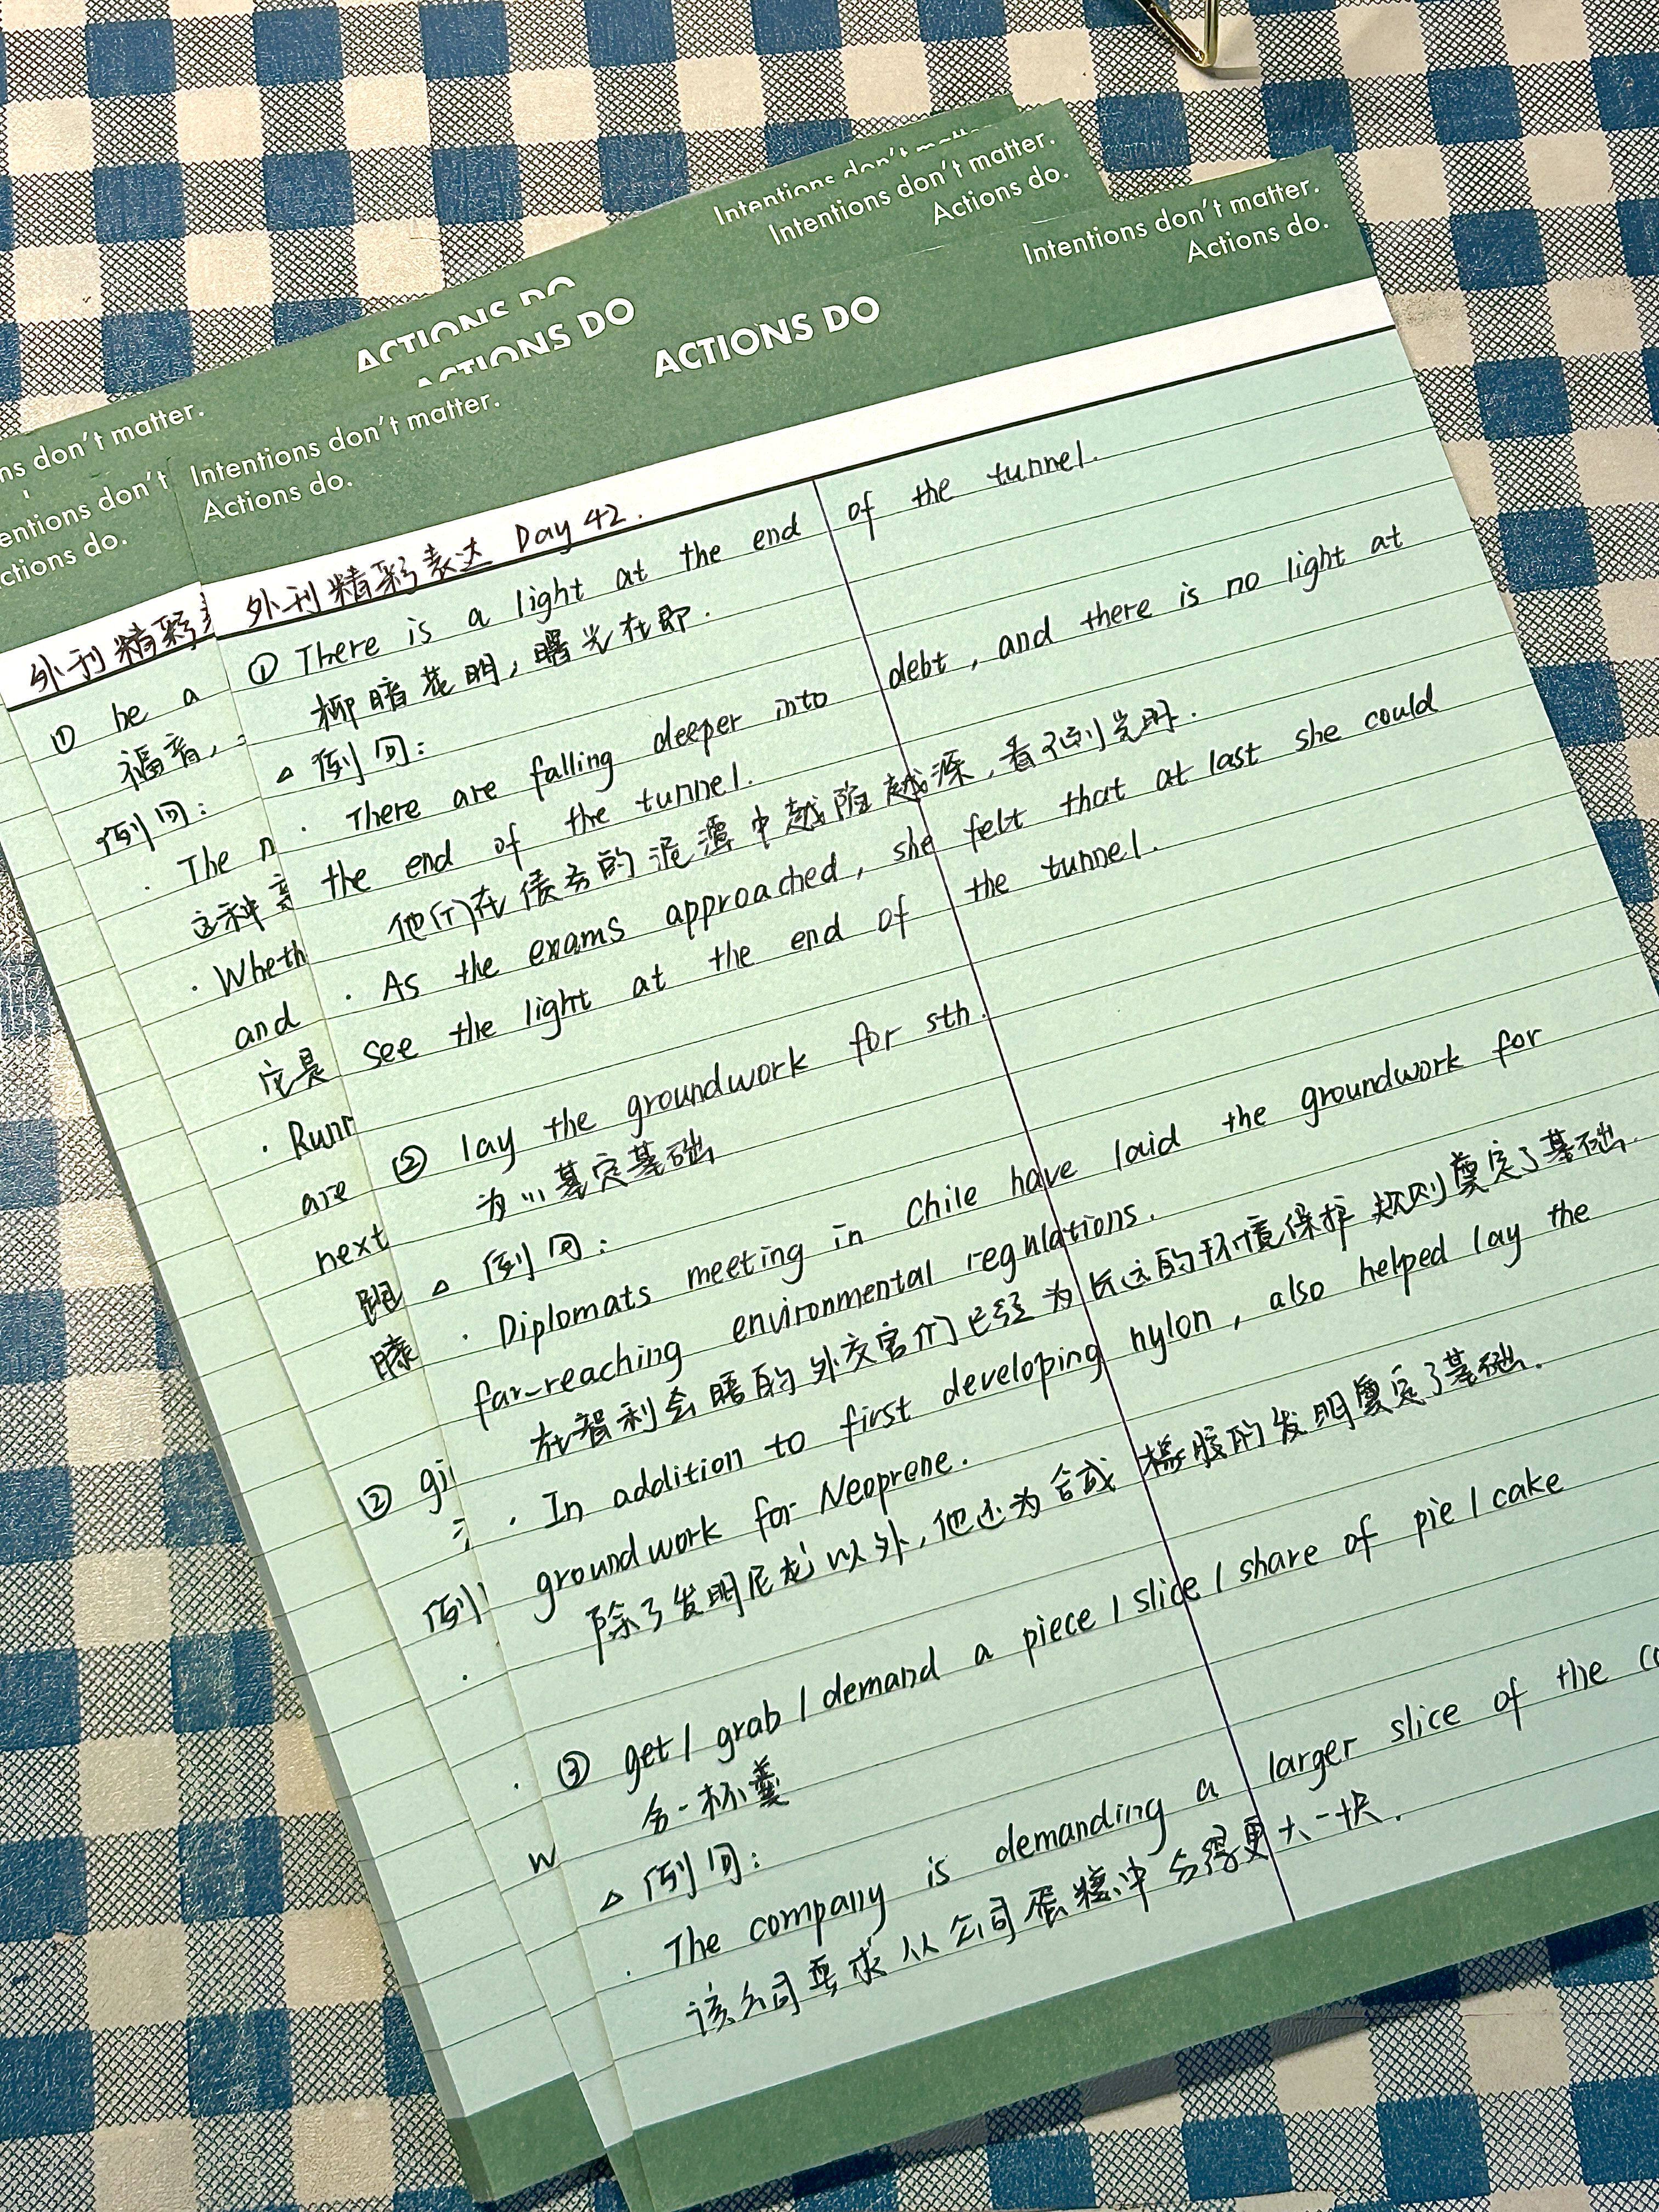 Intentions don't
Intentions don't matter.
Actions do.
Intentions don't matter.
Actions do.
ACTIONS DO
ACTIONS DO
ACTIONS DO
ns don't matter.
entions don't
ctions do.
Intentions don't matter.
Actions do.
外刊精彩
① be a
福音,
例句:
· The n
这种
· Wheth
and
应是
· Runn
are
next
跑
膝
② gi
例
w
外刊精彩表达 Day 42.
① There is a light at the end of the tunnel.
柳暗花明,曙光在即.
△ 例句:
· There are falling deeper into debt, and there is no light at
the end of the tunnel.
他们在债务的泥潭中越陷越深,看不到光明.
· As the exams approached, she felt that at last she could
see the light at the end of the tunnel.
② lay the groundwork for sth.
为…基定基础
△ 例句:
· Diplomats meeting in Chile have laid the groundwork for
far-reaching environmental regulations.
在智利会晤的外交官们已经为长远的环境保护规则奠定了基础.
· In addition to first developing nylon, also helped lay the
groundwork for Neoprene.
除了发明尼龙以外,他还为合成橡胶的发明奠定了基础.
③ get / grab / demand a piece / slice / share of pie / cake
分一杯羹
△ 例句:
· The company is demanding a larger slice of the
该公司要求从公司蛋糕中分得更大一块.